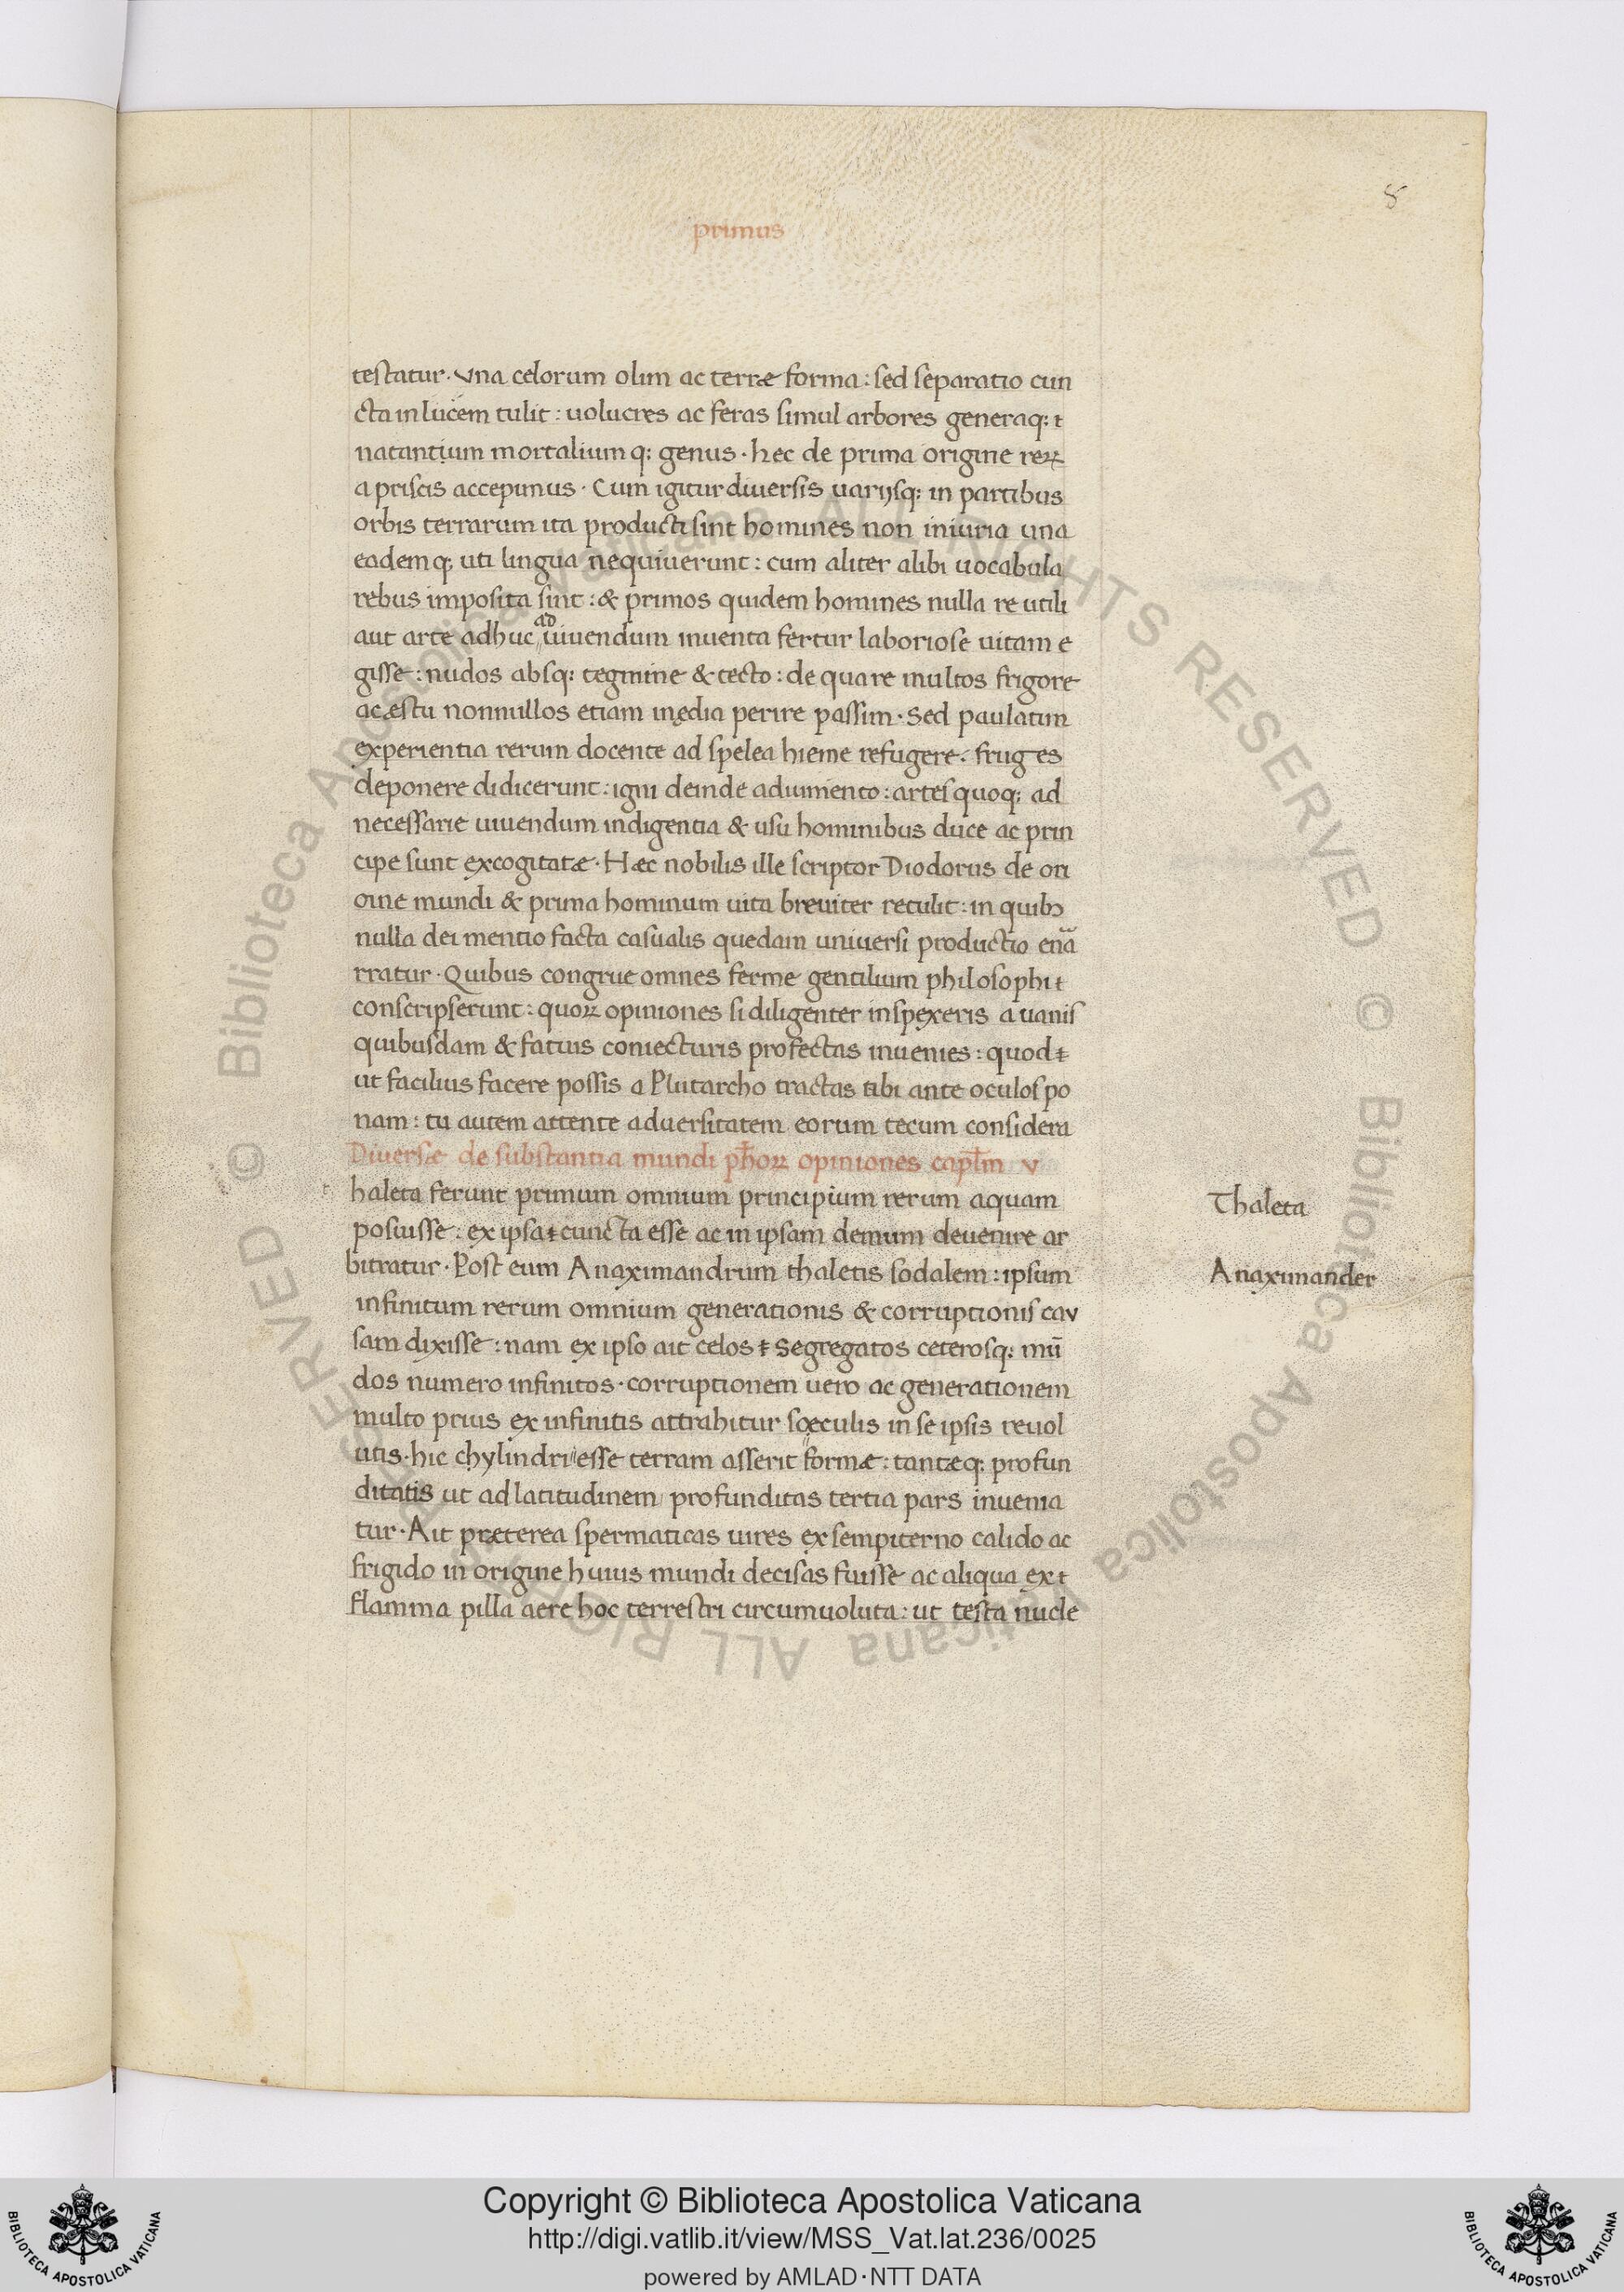 8
primus
testatur · vna celorum olim ac terræ forma : sed separatio cun
cta in lucem tulit : uolucres ac feras simul arbores generaq; ⁊
natantium mortalium q; genus · hec de prima origine reꝝ
a priscis accepimus · Cum igitur diuersis uarijsq; in partibus
orbis terrarum ita producti sint homines non iniuria una
eadem q; uti lingua nequiuerunt : cum aliter alibi uocabula
rebus imposita sint : & primos quidem homines nulla re utili
ad
aut arte adhuc uiuendum inuenta fertur laboriose uitam e
gisse : nudos absq; tegmine & tecto : de qua re multos frigore
ac æstu nonnullos etiam inedia perire passim · sed paulatim
experientia rerum docente ad spelea hieme refugere · fruges
deponere didicerunt : igni deinde adiumento : artes quoq; ad
necessarie uiuendum indigentia & usu hominibus duce ac prin
cipe sunt excogitatæ · Hæc nobilis ille scriptor Diodorus de ori
gine mundi & prima hominum uita breuiter retulit : in quibꝫ
nulla dei mentio facta casualis quedam uniuersi productio ena
rratur · Quibus congrue omnes ferme gentilium philosophi ⁊
conscripserunt : quoꝝ opiniones si diligenter inspexeris a uanis
quibusdam & fatuis coniecturis profectas inuenies : quod ⁊
ut facilius facere possis a Plutarcho tractas tibi ante oculos po
nam : tu autem attente aduersitatem eorum tecum considera
Diuersæ de substantia mundi ph̄oꝝ opiniones capl̄m v
t haleta ferunt primum omnium principium rerum aquam
Thaleta
posuisse : ex ipsa ⁊ cuncta esse ac in ipsam demum deuenire ar
bitratur · Post eum Anaximandrum thaletis sodalem : ipsum
Anaximander
infinitum rerum omnium generationis & corruptionis cav
sam dixisse : nam ex ipso ait celos ⁊ segregatos ceterosq; mū
dos numero infinitos · corruptionem uero ac generationem
multo prius ex infinitis attrahitur sœculis in se ipsis reuol
utis · hic chylindri esse terram asserit formæ : tantæq; profun
ditatis ut ad latitudinem profunditas tertia pars inuenia
tur · Ait præterea spermaticas uires ex sempiterno calido ac
frigido in origine huius mundi decisas fuisse ac aliqua ex ⁊
flamma pilla aere hoc terrestri circumuoluta : ut testa nucle
© Biblioteca Apostolica Vaticana ALL RIGHTS RESERVED © Biblioteca Apostolica Vaticana ALL RIGHTS RESERVED
Copyright © Biblioteca Apostolica Vaticana
http://digi.vatlib.it/view/MSS_Vat.lat.236/0025
powered by AMLAD·NTT DATA
BIBLIOTECA APOSTOLICA VATICANA
BIBLIOTECA APOSTOLICA VATICANA